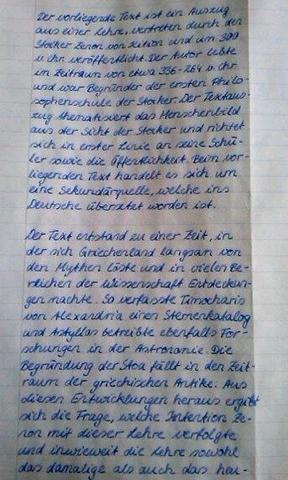 Der vorliegende Text ist ein Auszug
aus einer Lehre, vertreten durch den
Stoiker Zenon von Kition und um 300
v. Chr. veröffentlicht. Der Autor lebte
im Zeitraum von etwa 336-264 v. Chr.
und war Begründer der ersten Philo-
sophenschule der Stoiker. Der Textaus-
zug thematisiert das Menschenbild
aus der Sicht der Stoiker und richtet
sich in erster Linie an seine Schü-
ler sowie die Öffentlichkeit. Beim vor-
liegenden Text handelt es sich um
eine Sekundärquelle, welche ins
Deutsche übersetzt worden ist.

Der Text entstand zu einer Zeit, in
der sich Griechenland langsam von
den Mythen löste und in vielen Be-
reichen der Wissenschaft Entdeckun-
gen machte. So verfasste Timocharis
von Alexandria einen Sternenkatalog
und Aistyllas betreibte ebenfalls For-
schungen in der Astronomie. Die
Begründung der Stoa fällt in den Zeit-
raum der griechischen Antike. Aus
diesen Entwicklungen heraus ergibt
sich die Frage, welche Intention Ze-
non mit dieser Lehre verfolgte
und inwieweit die Lehre sowohl
das damalige als auch das heu-